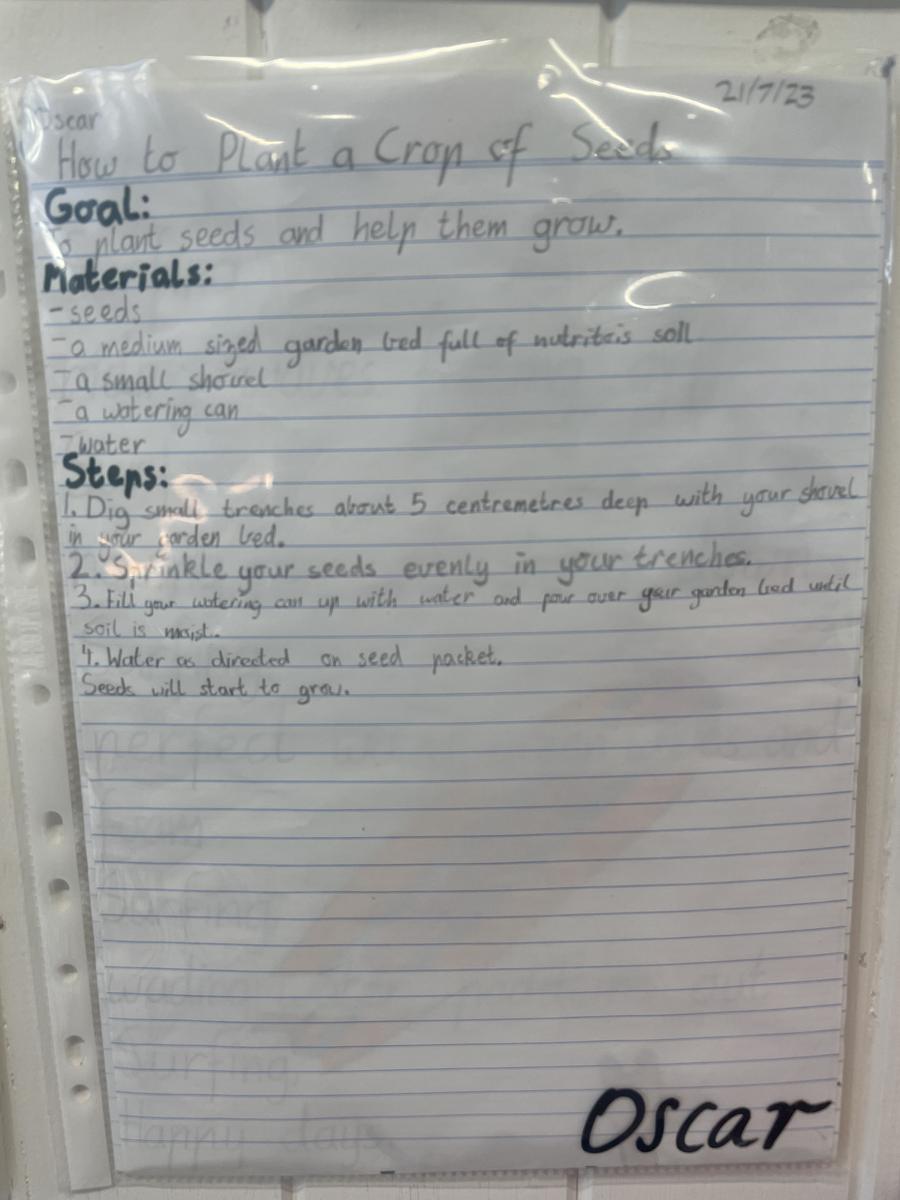 Oscar
21/7/23
How to Plant a Crop of Seeds
Goal:
To plant seeds and help them grow.
Materials:
- seeds
- a medium sized garden bed full of nutriteis soil
- a small shovel
- a watering can
- water
Steps:
1. Dig small trenches about 5 centremetres deep with your shovel
in your garden bed.
2. Sprinkle your seeds evenly in your trenches.
3. Fill your watering can up with water and pour over your garden bed until
soil is moist.
4. Water as directed on seed packet.
Seeds will start to grow.
perfect and
Surfing
Happy days
Oscar